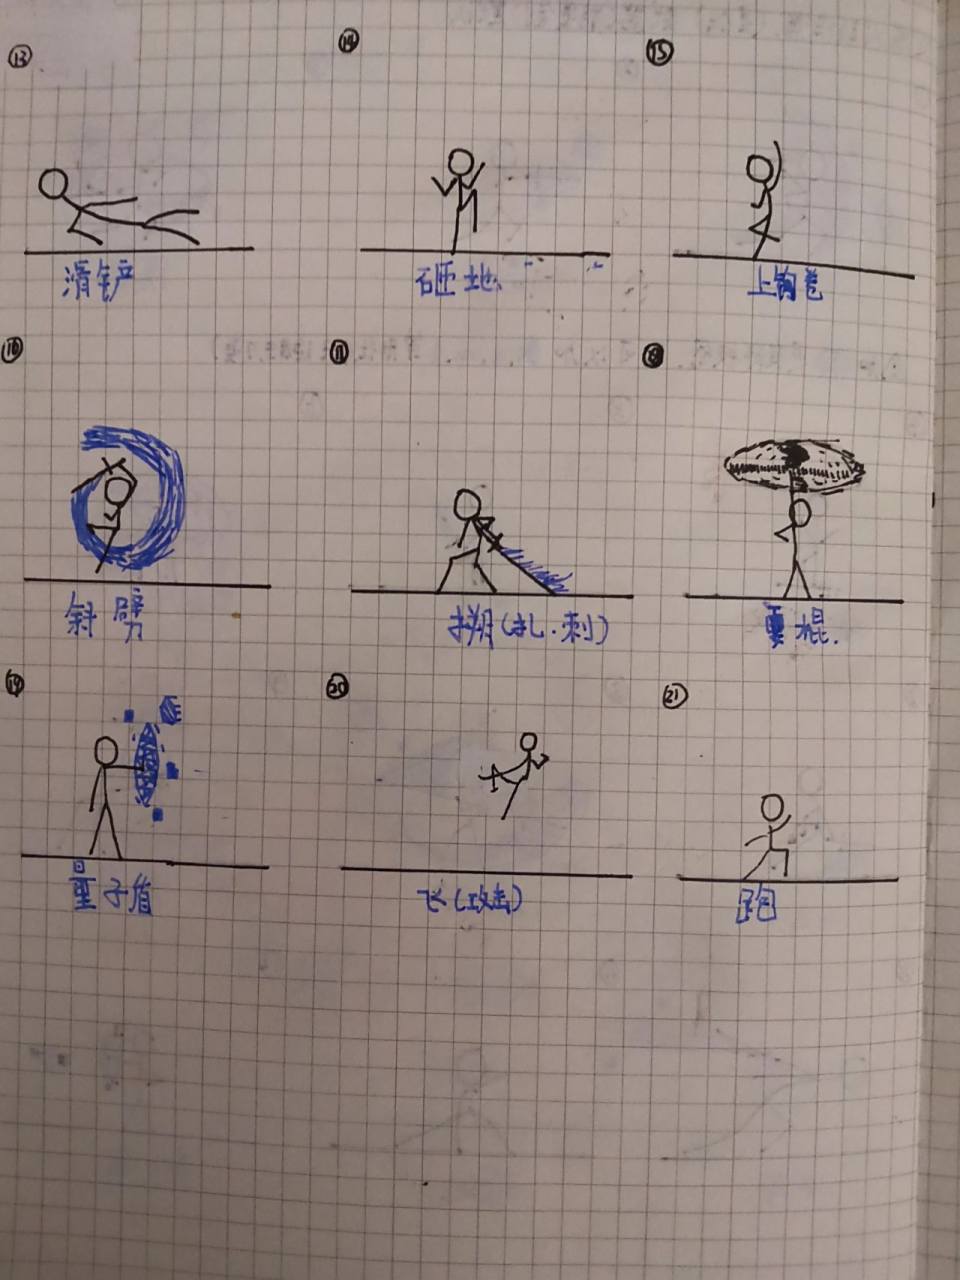 ⑬ ⑭ ⑮
滑铲 砸地 上钩卷
⑯ ⑰ ⑱
斜劈 (扎.刺) 棍.
⑲ ⑳ ㉑
量子盾 飞(攻击) 跑